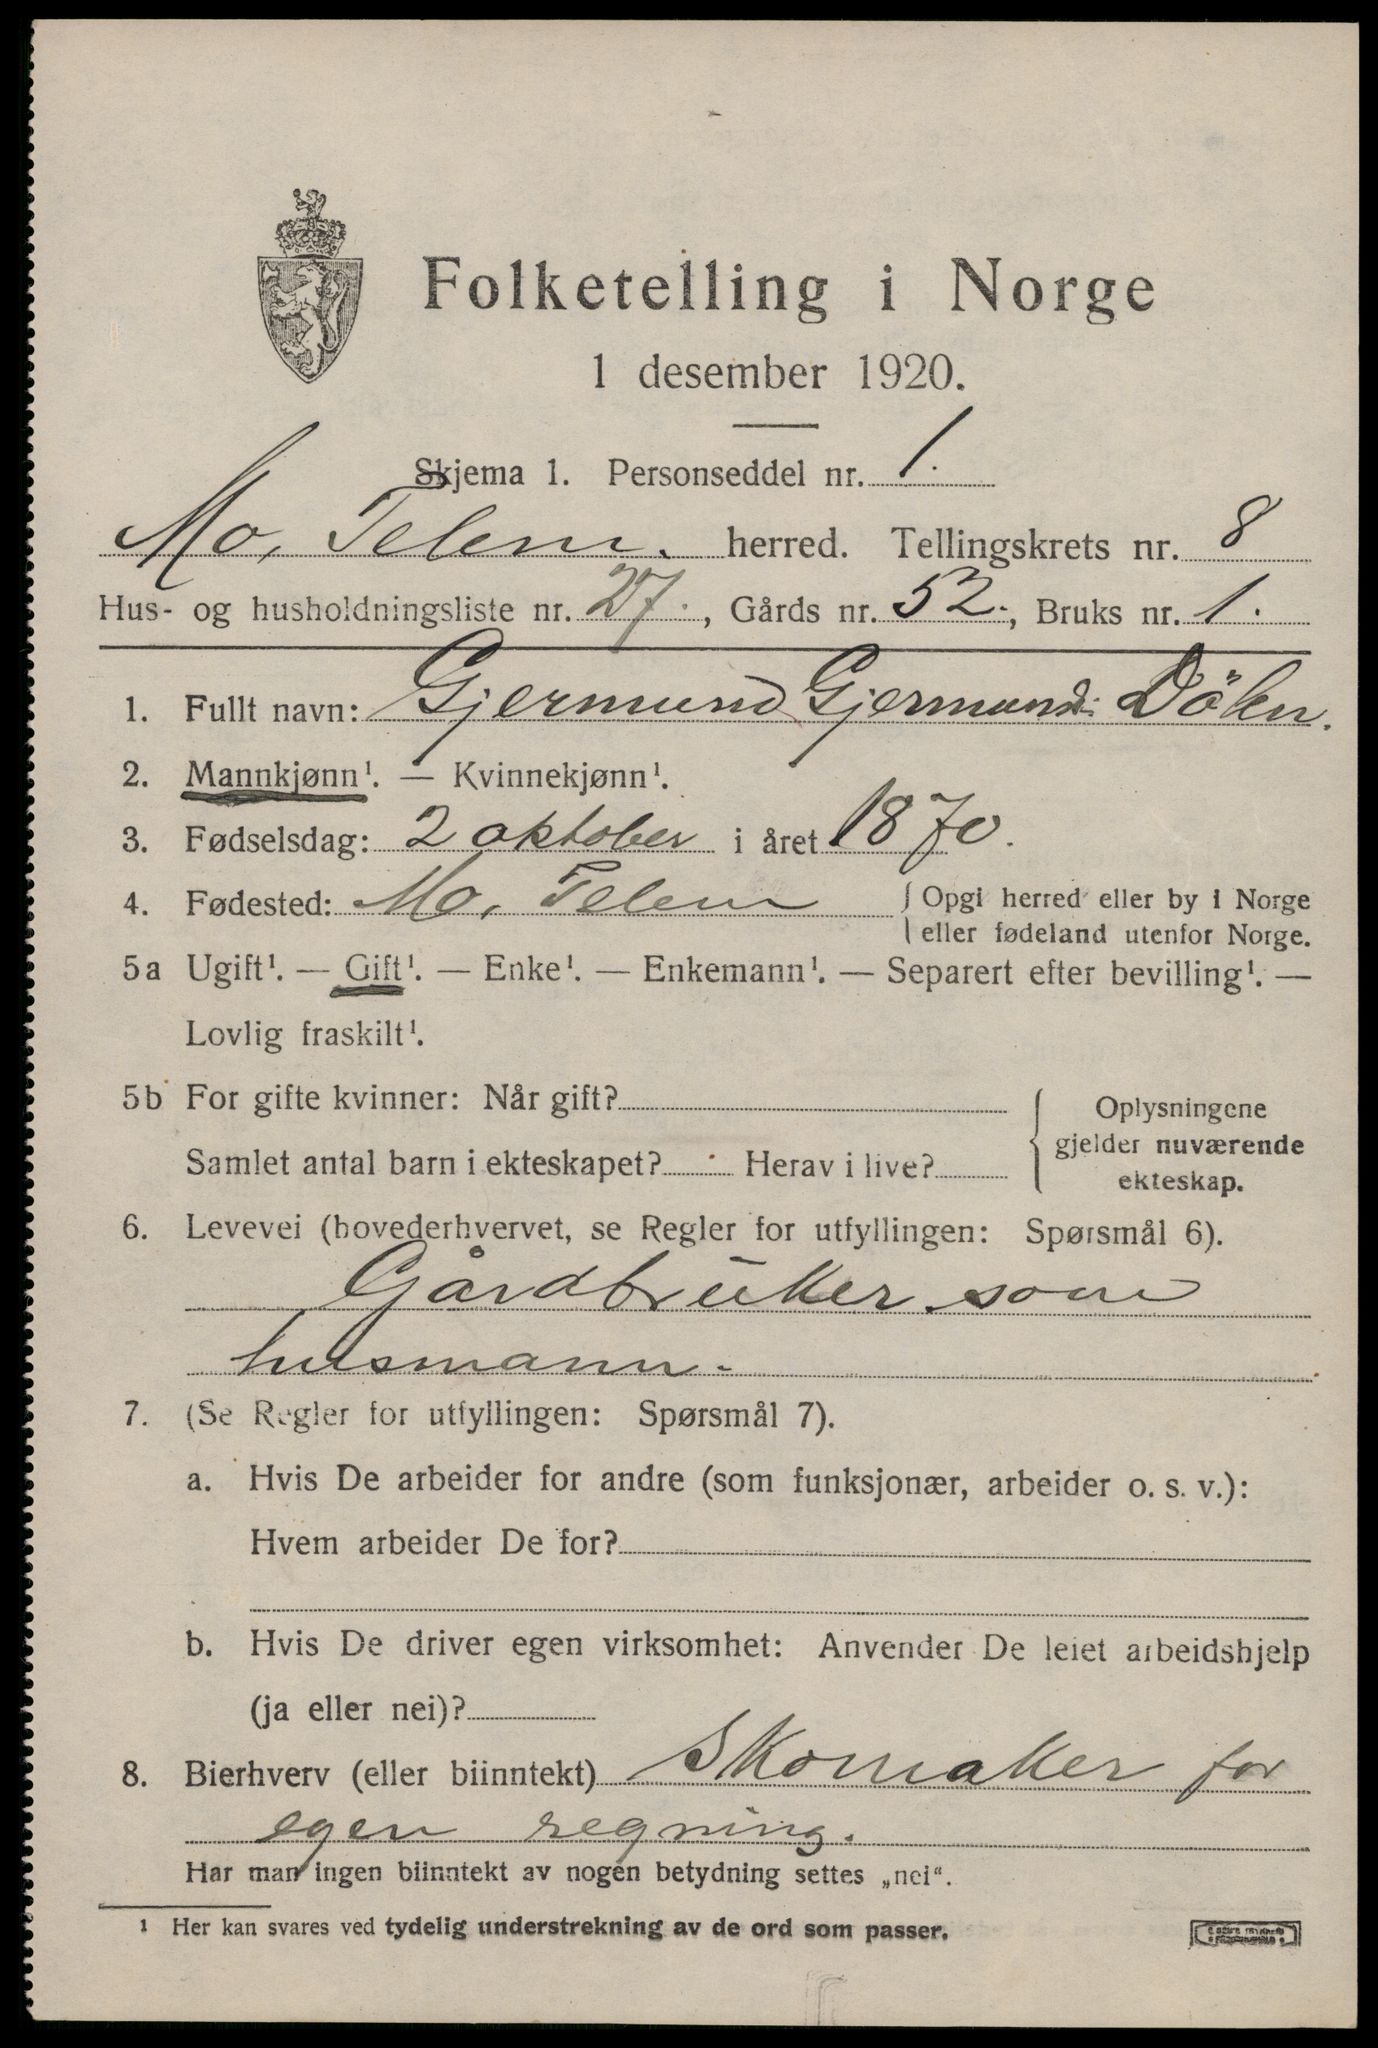 Folketelling i Norge
1 desember 1920.
Skjema 1. Personseddel nr. 1.
Mo, Telem. herred. Tellingskrets nr. 8
Hus- og husholdningsliste nr. 27., Gårds nr. 52., Bruks nr. 1.
1. Fullt navn: Gjermund Gjermunds. Dölen.
2. Mannkjønn¹. — Kvinnekjønn¹.
3. Fødselsdag: 2 oktober i året 1870.
4. Fødested: Mo, Telem { Opgi herred eller by i Norge
eller fødeland utenfor Norge.
5a Ugift¹. — Gift¹. — Enke¹. — Enkemann¹. — Separert efter bevilling¹. —
Lovlig fraskilt¹.
5b For gifte kvinner: Når gift? { Oplysningene
gjelder nuværende
Samlet antal barn i ekteskapet? Herav i live?
ekteskap.
6. Levevei (hovederhvervet, se Regler for utfyllingen: Spørsmål 6).
Gårdbrüker som
husmann.
7. (Se Regler for utfyllingen: Spørsmål 7).
a. Hvis De arbeider for andre (som funksjonær, arbeider o. s. v.):
Hvem arbeider De for?
b. Hvis De driver egen virksomhet: Anvender De leiet arbeidshjelp
(ja eller nei)?
8. Bierhverv (eller biinntekt) Skomaker for
egen regning.
Har man ingen biinntekt av nogen betydning settes „nei“.
¹ Her kan svares ved tydelig understrekning av de ord som passer.